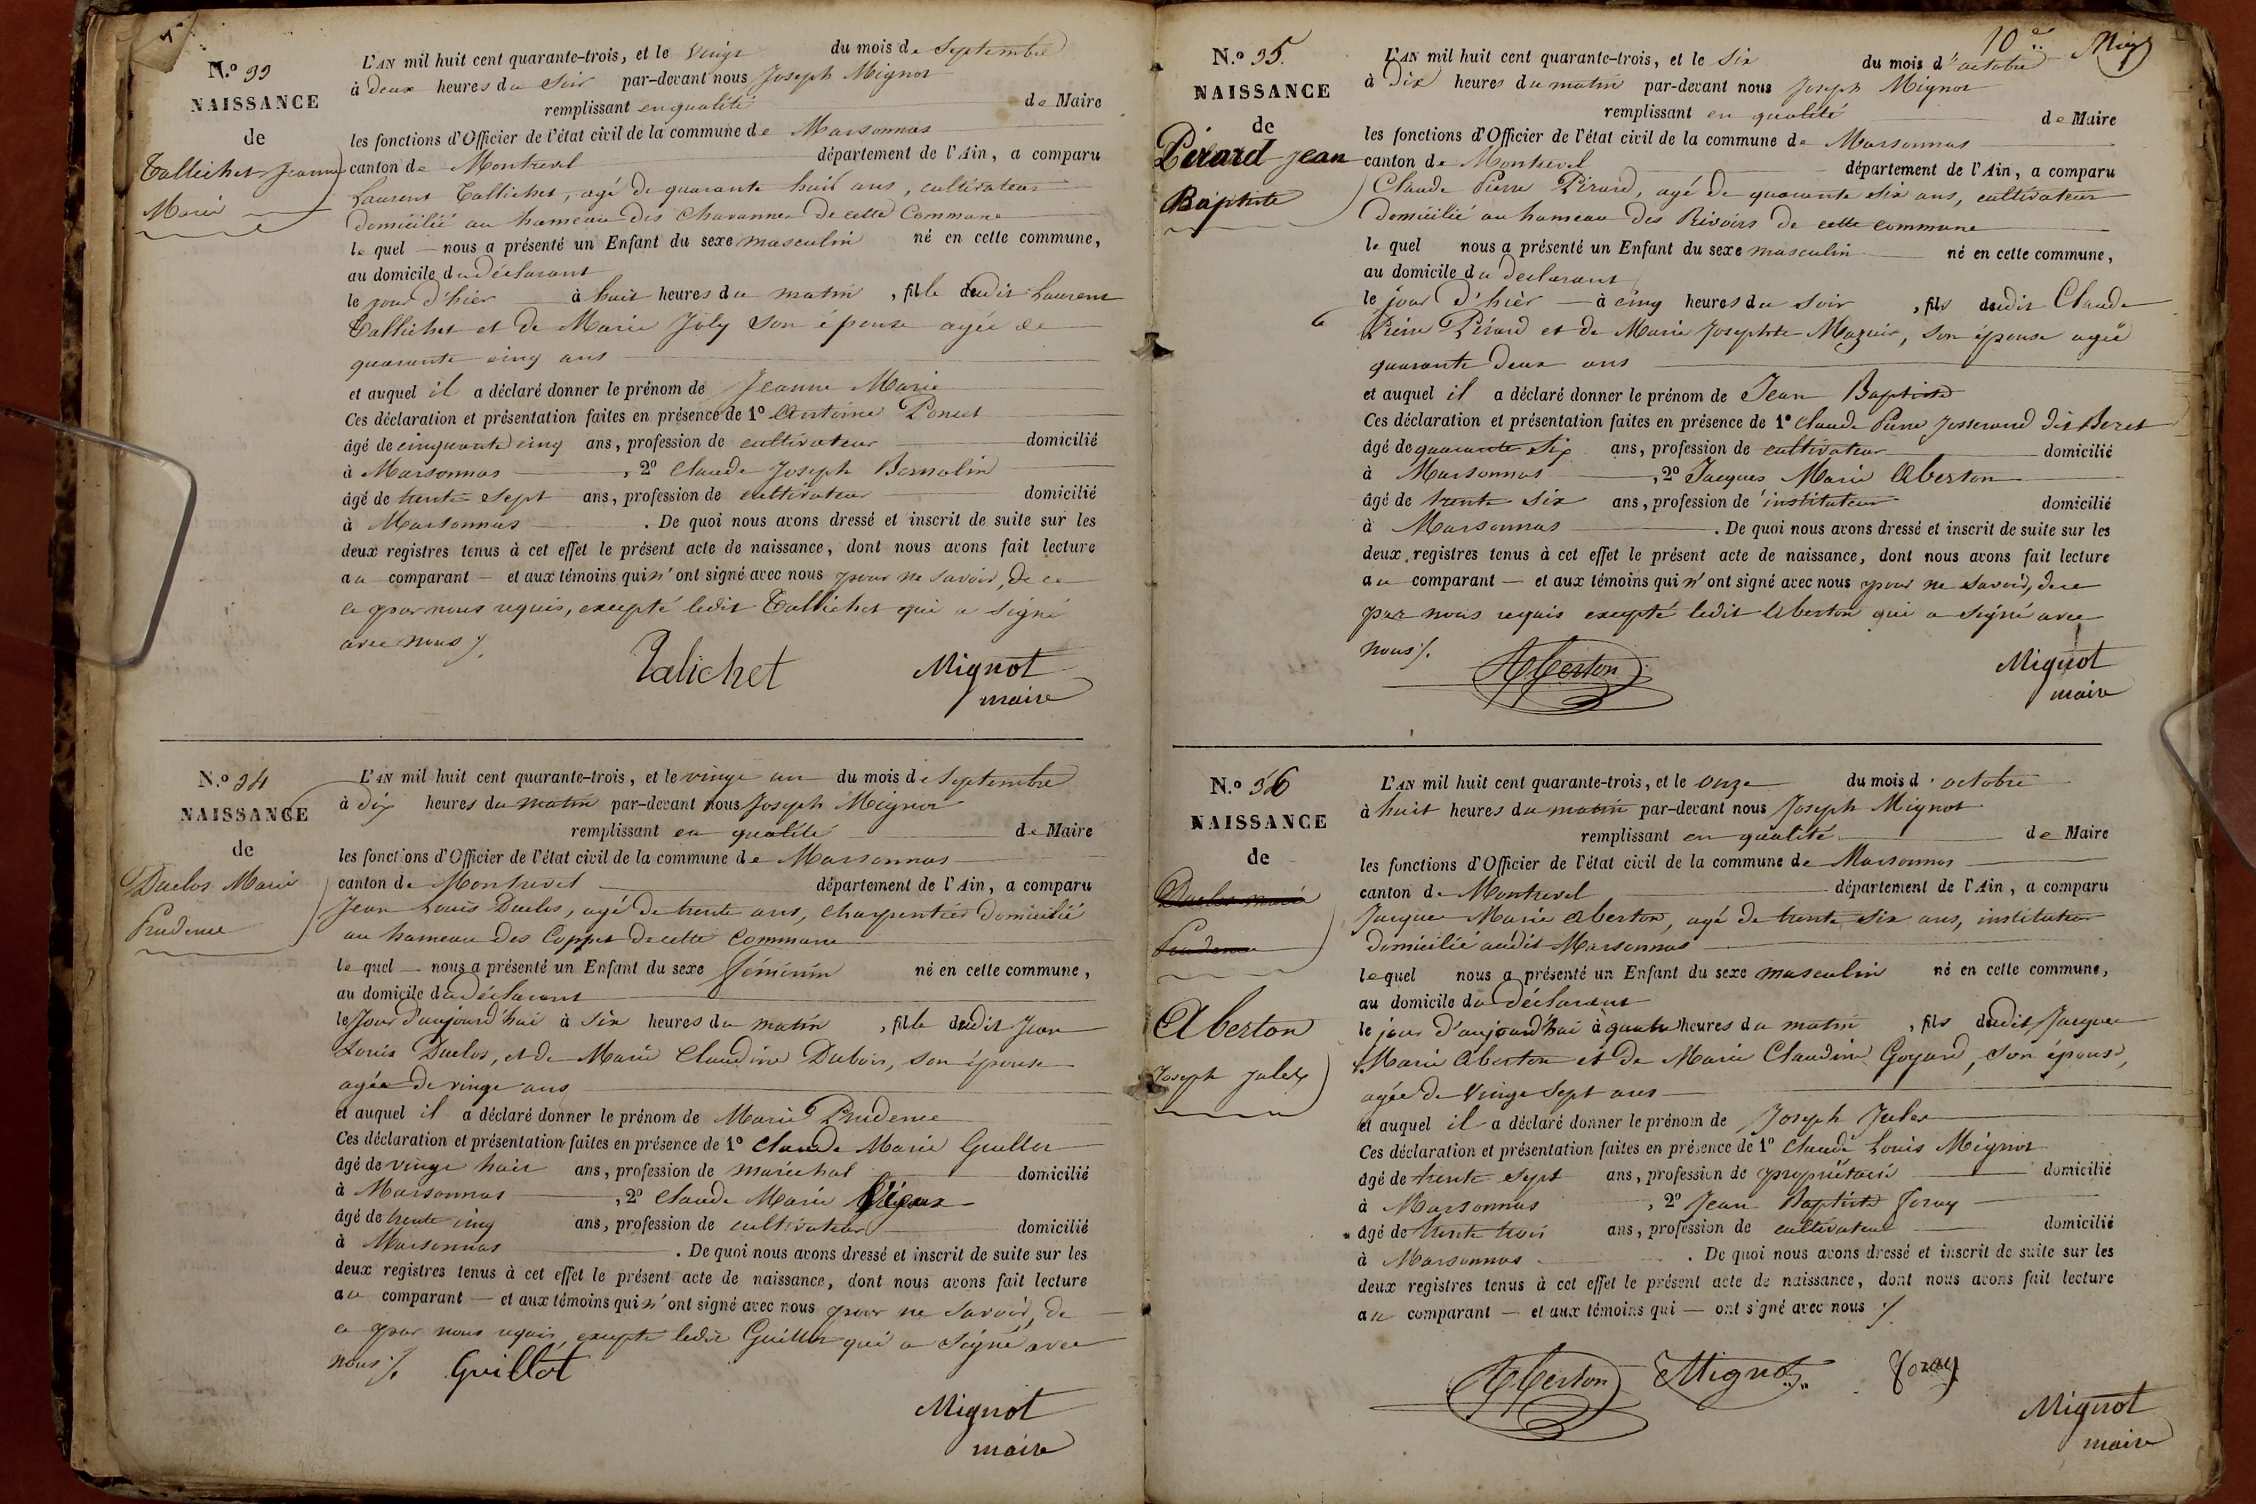 N.º 33
NAISSANCE
de
Tallichet Jeanne
Marie
L'AN mil huit cent quarante-trois, et le vingt du mois de Septembre
à deux heures du Soir par-devant nous Joseph Mignot
remplissant en qualité de Maire
les fonctions d'Officier de l'état civil de la commune de Marsonnas
canton de Montrevel département de l'Ain, a comparu
Laurent Tallichet, agé de quarante huit ans, cultivateur
domicilié au hameau des Chavannes de cette Commune
le quel nous a présenté un Enfant du sexe masculin né en cette commune,
au domicile du déclarant
le jour d'hier à huit heures du matin, fille dudit Laurent
Tallichet et de Marie Joly son épouse agée de
quarante cinq ans
et auquel il a déclaré donner le prénom de Jeanne Marie
Ces déclaration et présentation faites en présence de 1º Antoine Poncet
âgé de cinquante cinq ans, profession de cultivateur domicilié
à Marsonnas, 2º Claude Joseph Bernolin
âgé de trente Sept ans, profession de cultivateur domicilié
à Marsonnas. De quoi nous avons dressé et inscrit de suite sur les
deux registres tenus à cet effet le présent acte de naissance, dont nous avons fait lecture
au comparant et aux témoins qui n'ont signé avec nous pour ne savoir, de ce
ce par nous requis, excepté ledit Tallichet qui a signé
avec nous ⁒
Talichet Mignot
maire
N.º 34
NAISSANCE
de
Duclos Marie
Prudence
L'AN mil huit cent quarante-trois, et le vingt un du mois de Septembre
à dix heures du matin par-devant nous Joseph Mignot
remplissant en qualité de Maire
les fonctions d'Officier de l'état civil de la commune de Marsonnas
canton de Montrevel département de l'Ain, a comparu
Jean Louis Duclos, agé de trente ans, charpentier domicilié
au hameau des Coppet de cette Commune
le quel nous a présenté un Enfant du sexe féminin né en cette commune,
au domicile du déclarant
le Jour d'aujourd'hui à six heures du matin, fille dudit Jean
Louis Duclos, et de Marie Claudine Dubois, son épouse
agée de vingt ans
et auquel il a déclaré donner le prénom de Marie Prudence
Ces déclaration et présentation faites en présence de 1º Claude Marie Guillot
âgé de vingt huit ans, profession de maréchal domicilié
à Marsonnas, 2º Claude Marie
âgé de trente cinq ans, profession de cultivateur domicilié
à Marsonnas. De quoi nous avons dressé et inscrit de suite sur les
deux registres tenus à cet effet le présent acte de naissance, dont nous avons fait lecture
au comparant et aux témoins qui n'ont signé avec nous pour ne savoir, de
ce par nous requis, excepté ledit Guillot qui a signé avec
nous ⁒ Guillot
Mignot
maire
10e
N.º 35.
NAISSANCE
de
Pérard Jean
Baptiste
L'AN mil huit cent quarante-trois, et le six du mois d'octobre
à dix heures du matin par-devant nous Joseph Mignot
remplissant en qualité de Maire
les fonctions d'Officier de l'état civil de la commune de Marsonnas
canton de Montrevel département de l'Ain, a comparu
Claude Pierre Pérard, agé de quarante six ans, cultivateur
domicilié au hameau des Rivoirs de cette commune
le quel nous a présenté un Enfant du sexe masculin né en cette commune,
au domicile du déclarant
le jour d'hier à cinq heures du soir, fils dudit Claude
Pierre Pérard et de Marie Josephte Mazuir, son épouse agée
quarante deux ans
et auquel il a déclaré donner le prénom de Jean Baptiste
Ces déclaration et présentation faites en présence de 1º Claude Pierre Josserand dit Beret
âgé de quarante six ans, profession de cultivateur domicilié
à Marsonnas, 2º Jacques Marie Aberton
âgé de trente six ans, profession de instituteur domicilié
à Marsonnas. De quoi nous avons dressé et inscrit de suite sur les
deux registres tenus à cet effet le présent acte de naissance, dont nous avons fait lecture
au comparant et aux témoins qui n'ont signé avec nous pour ne savoir, de ce
par nous requis excepté ledit Aberton qui a signé avec
nous ⁒
Aberton Mignot
maire
N.º 36
NAISSANCE
de
Duclos Marie
Prudence
Aberton
Joseph Jules
L'AN mil huit cent quarante-trois, et le onze du mois d'octobre
à huit heures du matin par-devant nous Joseph Mignot
remplissant en qualité de Maire
les fonctions d'Officier de l'état civil de la commune de Marsonnas
canton de Montrevel département de l'Ain, a comparu
Jacques Marie Aberton, agé de trente six ans, instituteur
domicilié audit Marsonnas
le quel nous a présenté un Enfant du sexe masculin né en cette commune,
au domicile du déclarant
le jour d'aujourd'hui à quatre heures du matin, fils dudit Jacques
Marie Aberton et de Marie Claudine Goyard, son épouse,
agée de vingt sept ans
et auquel il a déclaré donner le prénom de Joseph Jules
Ces déclaration et présentation faites en présence de 1º Claude Louis Mignot
âgé de trente sept ans, profession de propriétaire domicilié
à Marsonnas, 2º Jean Baptiste Foray
âgé de trente trois ans, profession de cultivateur domicilié
à Marsonnas. De quoi nous avons dressé et inscrit de suite sur les
deux registres tenus à cet effet le présent acte de naissance, dont nous avons fait lecture
au comparant et aux témoins qui ont signé avec nous ⁒
Aberton Mignot Foray
Mignot
maire